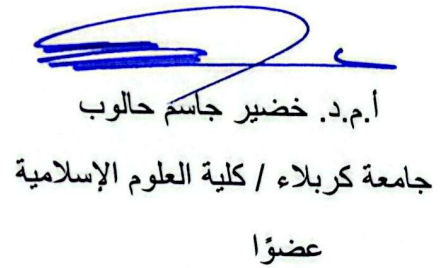 أ.م.د. خضير جاسم حالوب
جامعة كربلاء / كلية العلوم الإسلامية
عضوًا